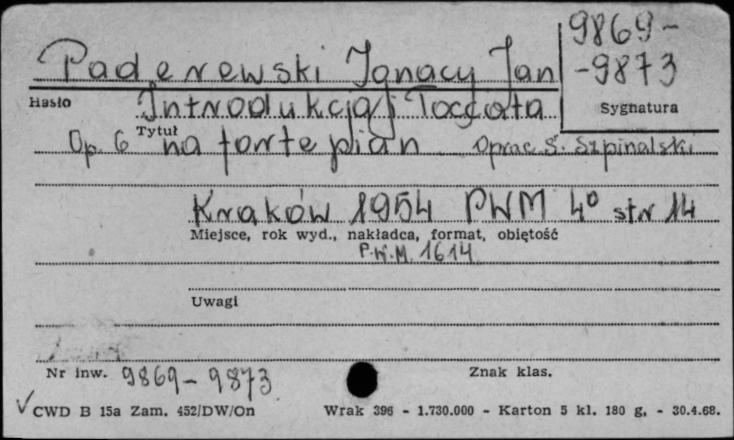 9869-
-9873
Paderewski Ignacy Jan
Hasło
Sygnatura
Introdukcja i Toccata
Tytuł
Op. 6 na fortepian Oprac S. Szpinalski
Kraków 1954 PWM 4° str 14
Miejsce, rok wyd., nakładca, format, obiętość
P.W.M. 1614
Uwagi
Nr inw. 9869-9873
Znak klas.
CWD B 15a Zam. 452/DW/On Wrak 396 - 1.730.000 - Karton 5 kl. 180 g, - 30.4.68.